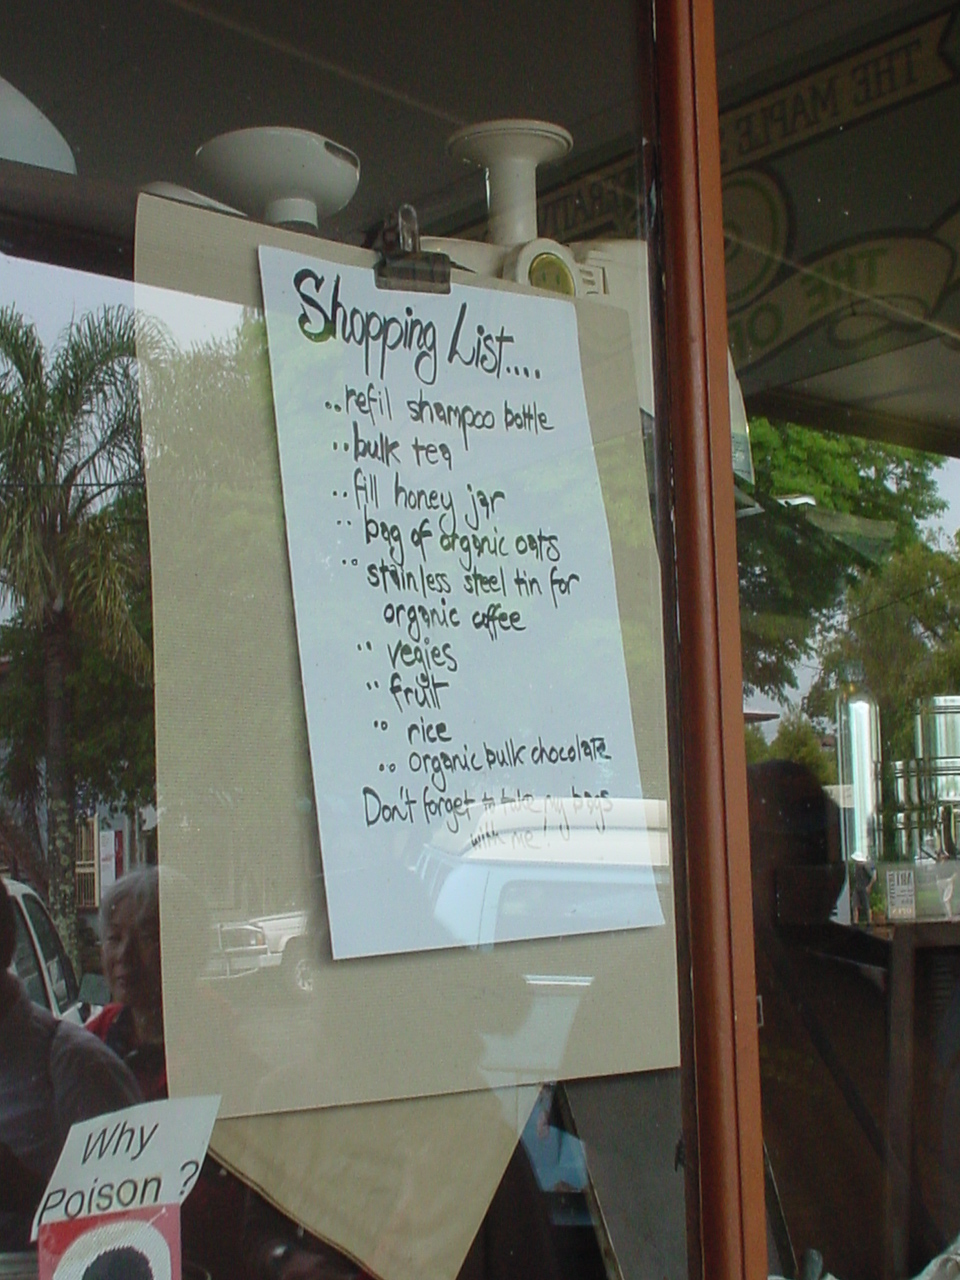 Shopping List....
..refil shampoo bottle
..bulk tea
..fill honey jar
..bag of organic oats
..stainless steel tin for
organic coffee
..vegies
..fruit
..rice
..organic bulk chocolate
Don't forget to take my bags
with me!
Why
Poison ?
THE MAPLE
THE